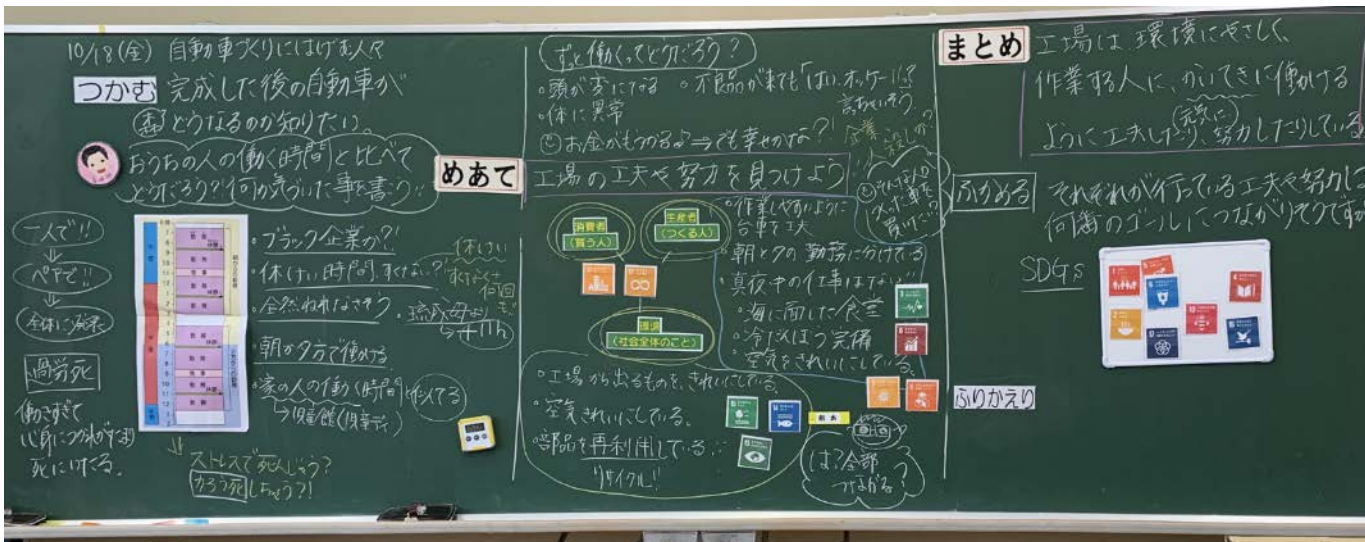 10/18(金) 自動車づくりにはげむ人々
つかむ 完成した後の自動車が
どうなるのか知りたい。
おうちの人の働く時間と比べて
どうだろう?何か気づいた事を書こう
一人で!!
ペアで!!
全体に発表
過労死
働きすぎて
死にいたる。
・ブラック企業か?!
・休けい時間、すくない?
休けい
すくなくは
何回も
・全然ねれなさそう
・朝か夕方で働ける
・家の人の働く時間と似てる
→児童館(児童デイ)
ストレスで死んじゃう?
かろう死しちゃう?!
ずっと働くってどうだろう?
・頭が変になる
・不良品が来ても「はい、オッケー!!」?
言っちゃいそう
・体に異常
お金がもうかる♪⇒でも幸せかな?!
めあて 工場の工夫や努力を見つけよう
消費者
(買う人)
生産者
(つくる人)
環境
(社会全体のこと)
・作業しやすいように
台車を工夫
・朝と夕の勤務に分けている
・真夜中の仕事はない
・海に面した食堂
・冷だんぼう完備
・空気をきれいにしている。
・工場から出るものを、きれいにしている
・空気きれいにしている。
・部品を再利用している
リサイクル!!
は?全部
つながる?
まとめ 工場は環境にやさしく、
作業する人に、かいてきに働ける
元気に
ように工夫したり、努力したりしている
ふかめる それぞれが行っている工夫や努力は
何番のゴールにつながりそうですか
SDGs
ふりかえり